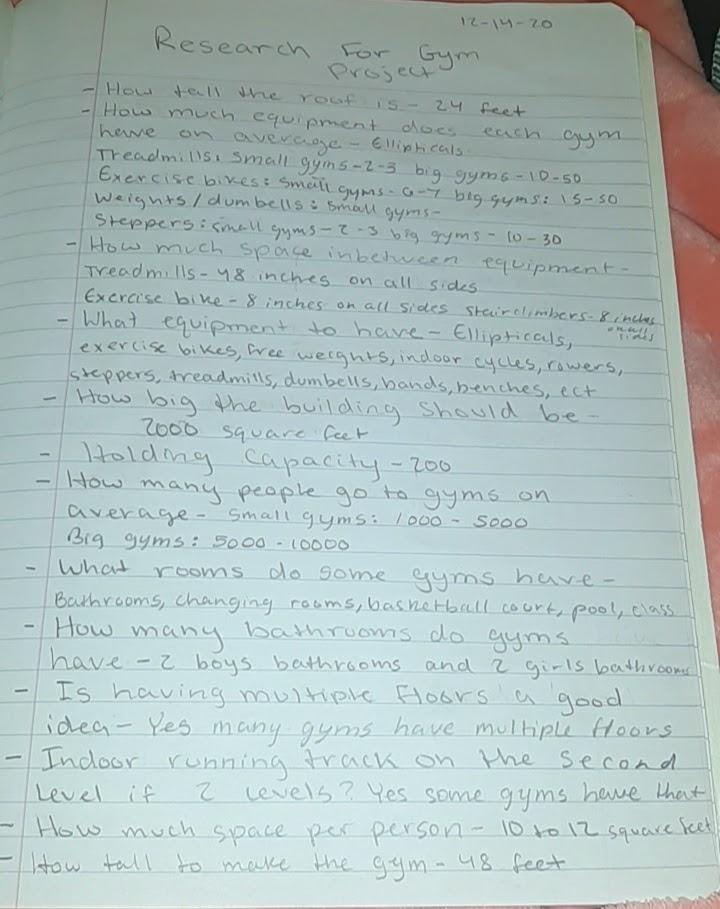 12-14-20
Research For Gym
Project
- How tall the roof is - 24 feet
- How much equipment does each gym
have on average - Ellipticals
Treadmills: small gyms - 2-3 big gyms - 10-50
Exercise bikes: small gyms - 6-7 big gyms: 15-50
Weights/dumbells: small gyms-
Steppers: small gyms - 2-3 big gyms - 10-30
- How much space inbetween equipment -
Treadmills - 48 inches on all sides
Exercise bike - 8 inches on all sides stairclimbers - 8 inches
on all
sides
- What equipment to have - Ellipticals,
exercise bikes, free weights, indoor cycles, rowers,
steppers, treadmills, dumbells, bands, benches, ect
- How big the building should be -
2000 square feet
- Holding capacity - 200
- How many people go to gyms on
average - small gyms: 1000 - 5000
Big gyms: 5000 - 10000
- What rooms do some gyms have -
Bathrooms, changing rooms, basketball court, pool, class
- How many bathrooms do gyms
have - 2 boys bathrooms and 2 girls bathrooms
- Is having multiple floors a good
idea - Yes many gyms have multiple floors
- Indoor running track on the second
level if 2 levels? Yes some gyms have that
- How much space per person - 10 to 12 square feet
- How tall to make the gym - 48 feet